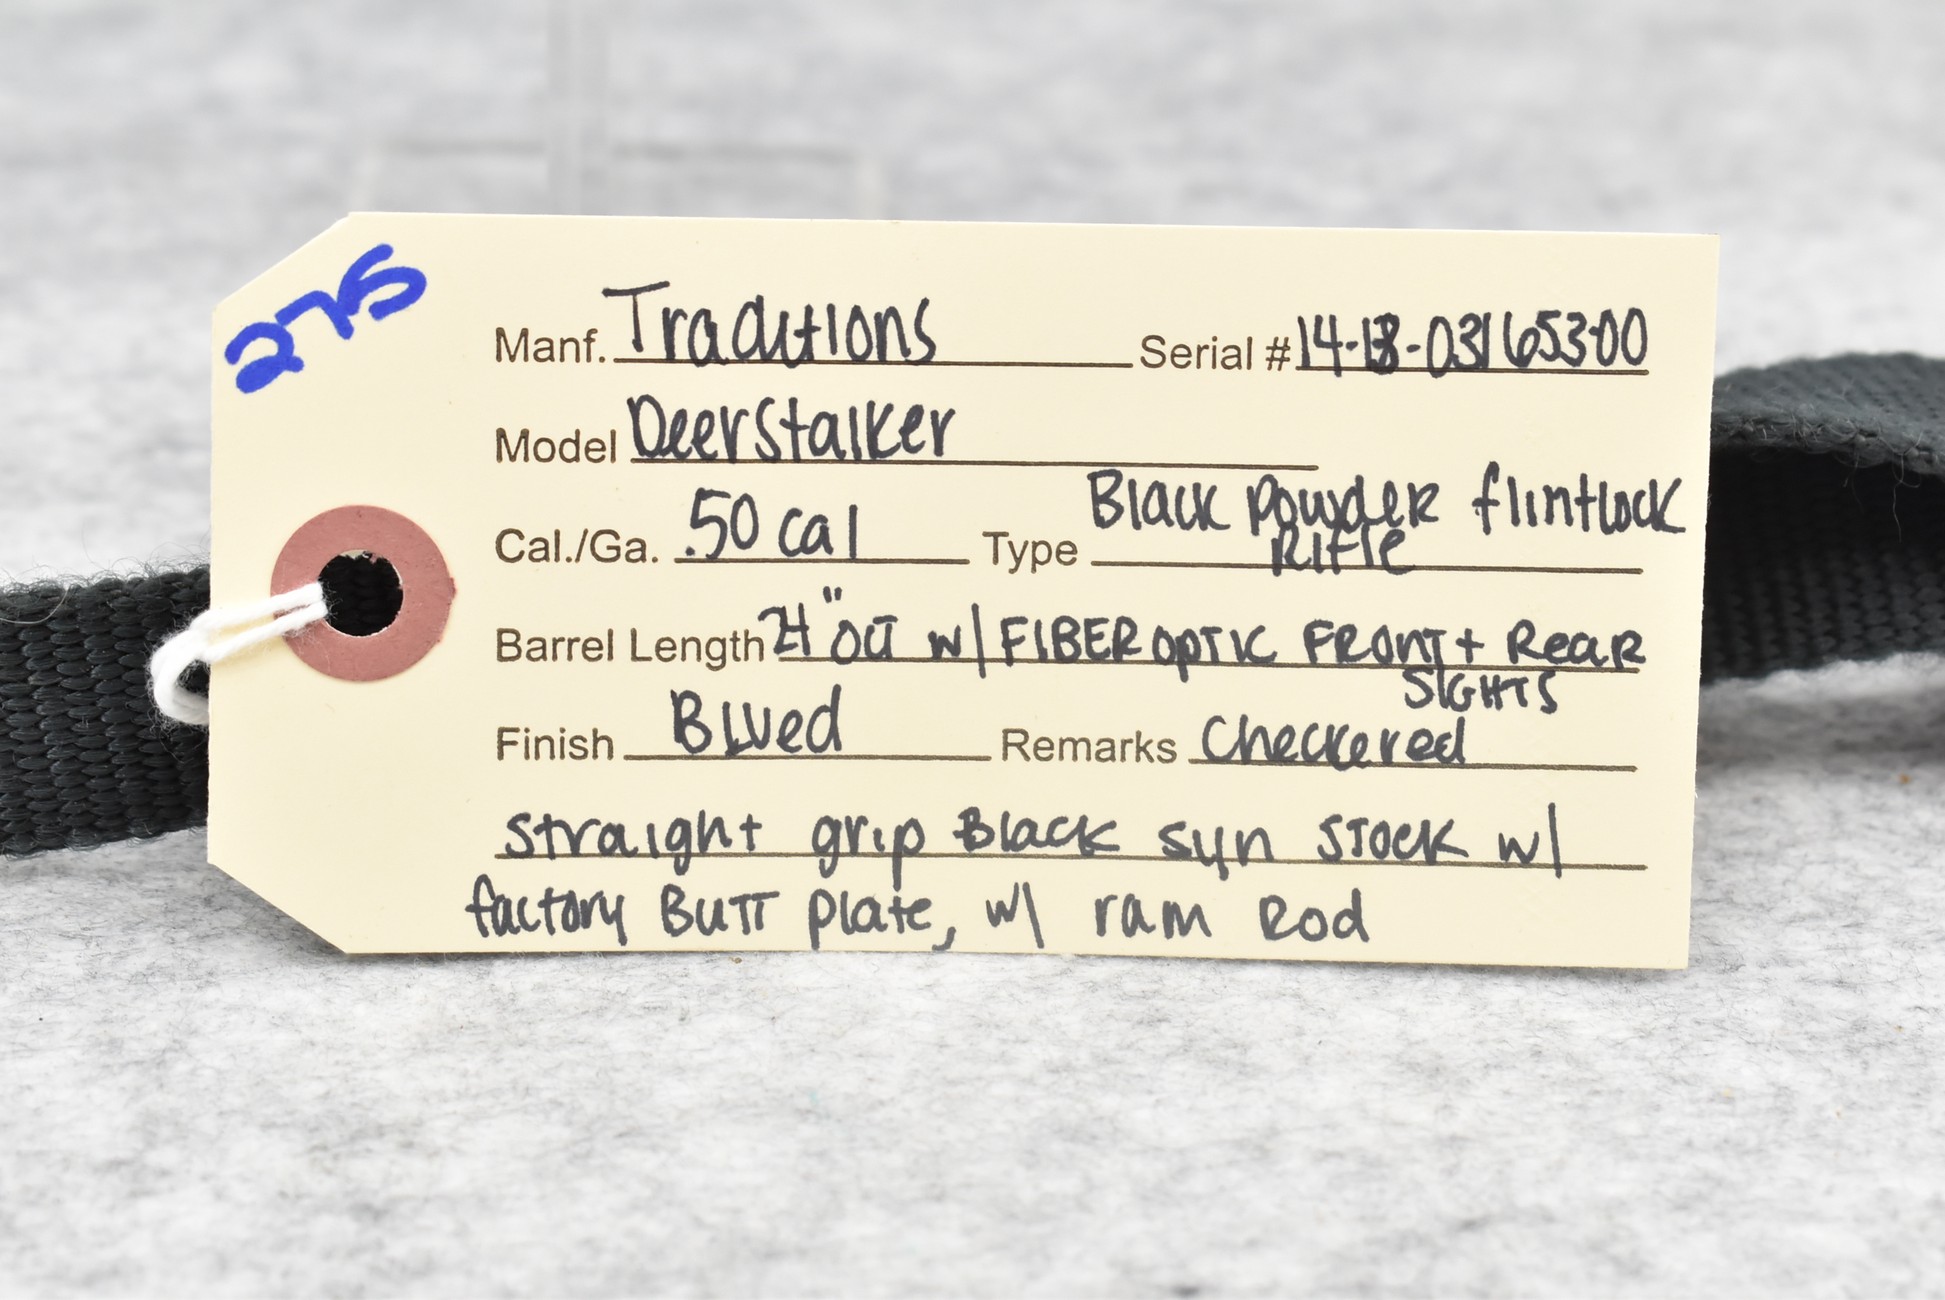 275
Manf. Traditions Serial # 14-13-031653-00
Model DeerStalker
Cal./Ga. .50 cal Type Black Powder flintlock
Rifle
Barrel Length 24" Oct w/ FIBER OPTIC FRONT + Rear
SIGHTS
Finish Blued Remarks Checkered
straight grip Black syn STOCK w/
factory Butt plate, w/ ram Rod